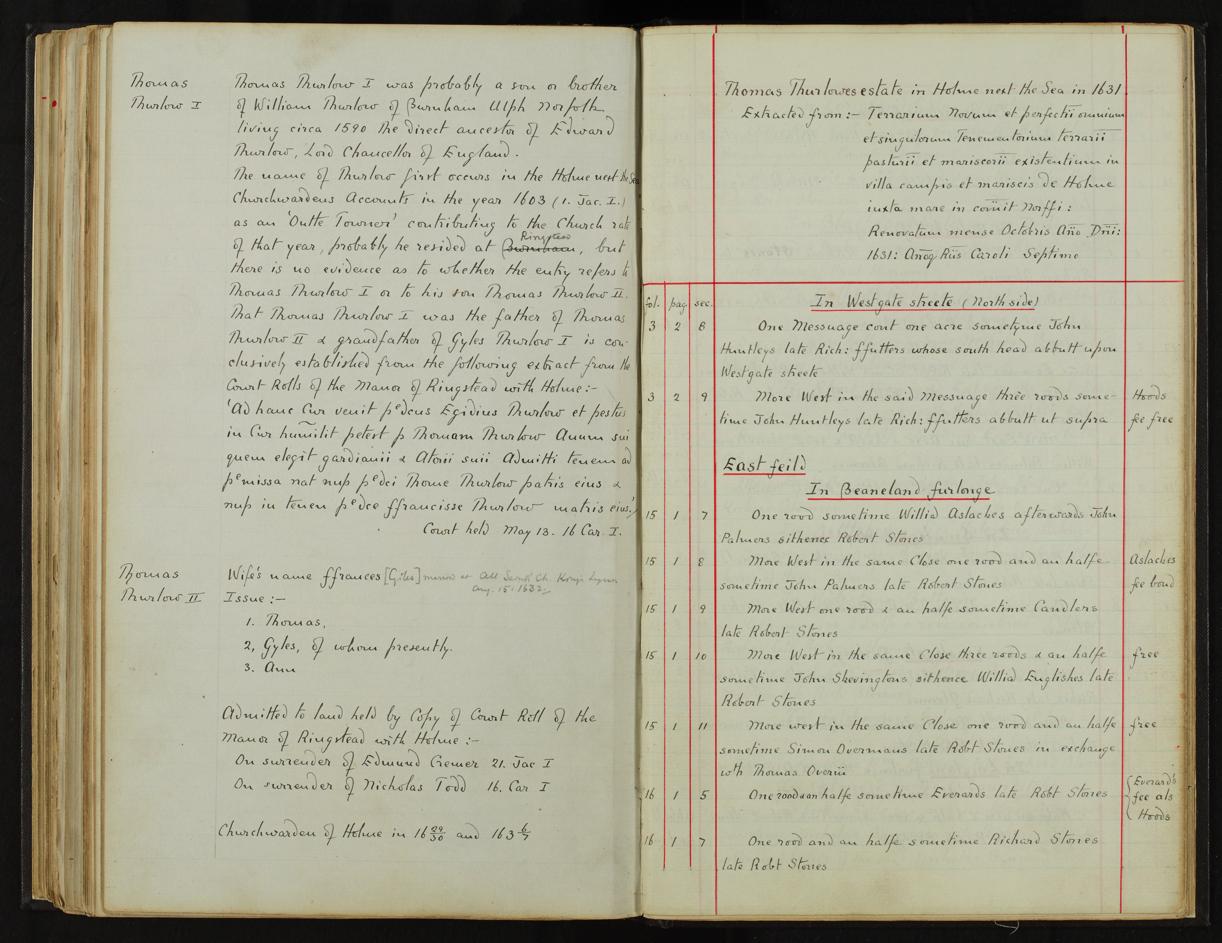 Thomas
Thurlow I
Thomas Thurlow I was probably a son or brother
of William Thurlow of Burnham Ulph Norfolk
living circa 1590 the direct ancestor of Edward
Thurlow, Lord Chancellor of England.
The name of Thurlow first occurs in the Holme next the Sea
Churchwardens Accounts in the year 1603 (1. Jac. I.)
as an 'Outte Towner' contributing to the Church rate
of that year, probably he resided at Burnham Ringstead, but
there is no evidence as to whether the entry refers to
Thomas Thurlow I or to his son Thomas Thurlow II.
That Thomas Thurlow I was the father of Thomas
Thurlow II & grandfather of Gyles Thurlow I is con-
clusively established from the following extract from the
Court Rolls of the Manor of Ringstead with Holme:-
'Ad hanc Cur venit pedcus Egidius Thurlow et pestus
in Cur humilit petest p Thomam Thurlow Auum sui
quem elegit gardianii & Atorii suii Admitti tenem ad
pemissa nat nup pedci Thome Thurlow patris eius &
nup in tenen pedce ffrancisse Thurlow matris eius.'
Court held May 13. 16 Car. I.
Thomas
Thurlow II
Wife's name ffrances [Giles] married at All Saints Ch. King's Lynn
Aug. 15. 1632
Issue :-
1. Thomas,
2, Gyles, of whom presently.
3. Ann
Admitted to land held by Copy of Court Roll of the
Manor of Ringstead with Holme :-
On surrender of Edmund Cremer 21. Jac I
On surrender of Nicholas Todd 16. Car I
Churchwarden of Holme in 16 29/30 and 163 6/7
Thomas Thurlowes estate in Holme next the Sea in 1631.
Extracted from :- Terrarium Novum et perfectii omnium
et singulorum Tenementorium terrarii
pasturii et mariscorii existentium in
villa campis et mariscis de Holme
iuxta mare in comit Norffi :
Renovatum mense Octobris Año Dñi:
1631: Añoq Riis Caroli Septimo
fol. pag. sec.
In Westgate streete (North side)
3 2 8 One Messuage cont one acre sometyme John
Huntleys late Rich: ffutters whose south head abbutt upon
Westgate streete
3 2 9 More West in the said Messuage three roods some- Hoods
time John Huntleys late Rich: ffutters abbutt ut supra fee free
East feild
In Beaneland furlonge
15 1 7 One rood sometime Willid Aslaches afterwards John
Palmers sithence Robert Stones
15 1 8 More West in the same Close one rood and an halfe Aslaches
sometime John Palmers late Robert Stones fee bond
15 1 9 More West one rood & an halfe sometime Candlers
late Robert Stones
15 1 10 More West in the same Close three roods & an halfe free
sometime John Skevingtons sithence Willid Englishes late
Robert Stones
15 1 11 More west in the same Close one rood and an halfe free
sometime Simon Overmans late Robt Stones in exchange
wth Thomas Overiii
16 1 5 One rood & an halfe sometime Everards late Robt Stones { Everard's
fee als
Hoods
16 1 7 One rood and an halfe sometime Richard Stones
late Robt Stones